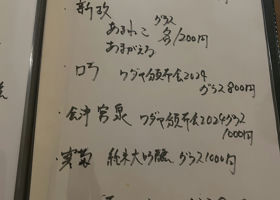 ・新政 グラス
あまねこ 各1200円
あまがえる
・ロ万 ワダヤ頒布会2024
グラス800円
・会津宮泉 ワダヤ頒布会2024グラス
1000円
純米大吟醸 グラス1000円